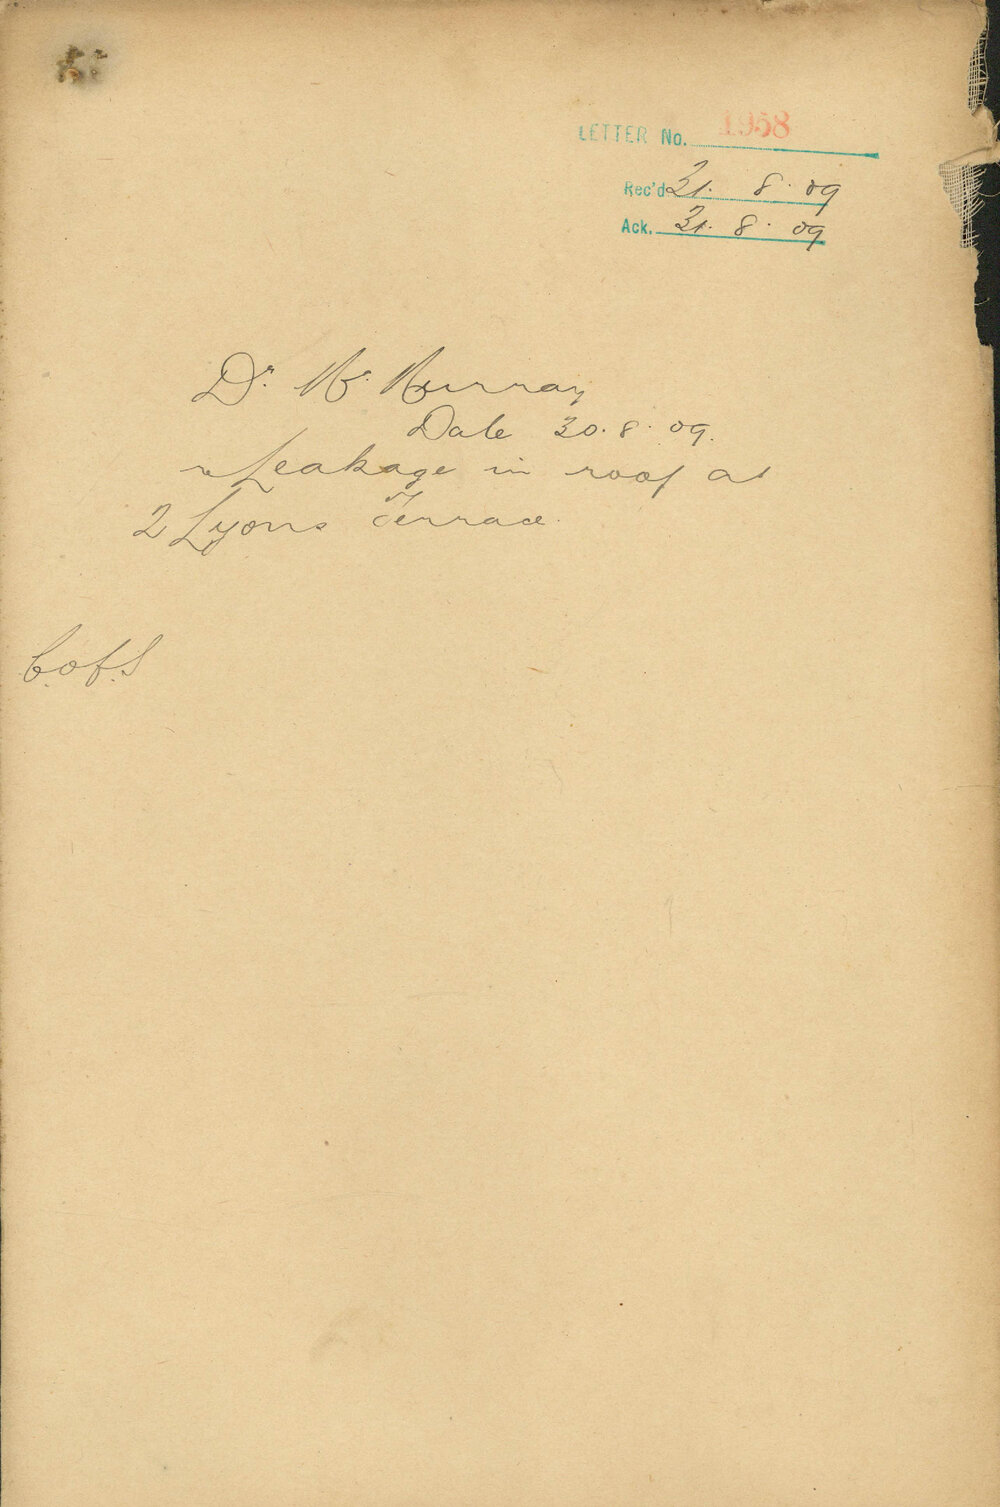 LETTER No. 1958
Rec'd 31. 8. 09
Ack. 31. 8. 09
Dr. Mc. Murray
Date 30. 8. 09.
re Leakage in roof at
2 Lyons Terrace.
C. of. S